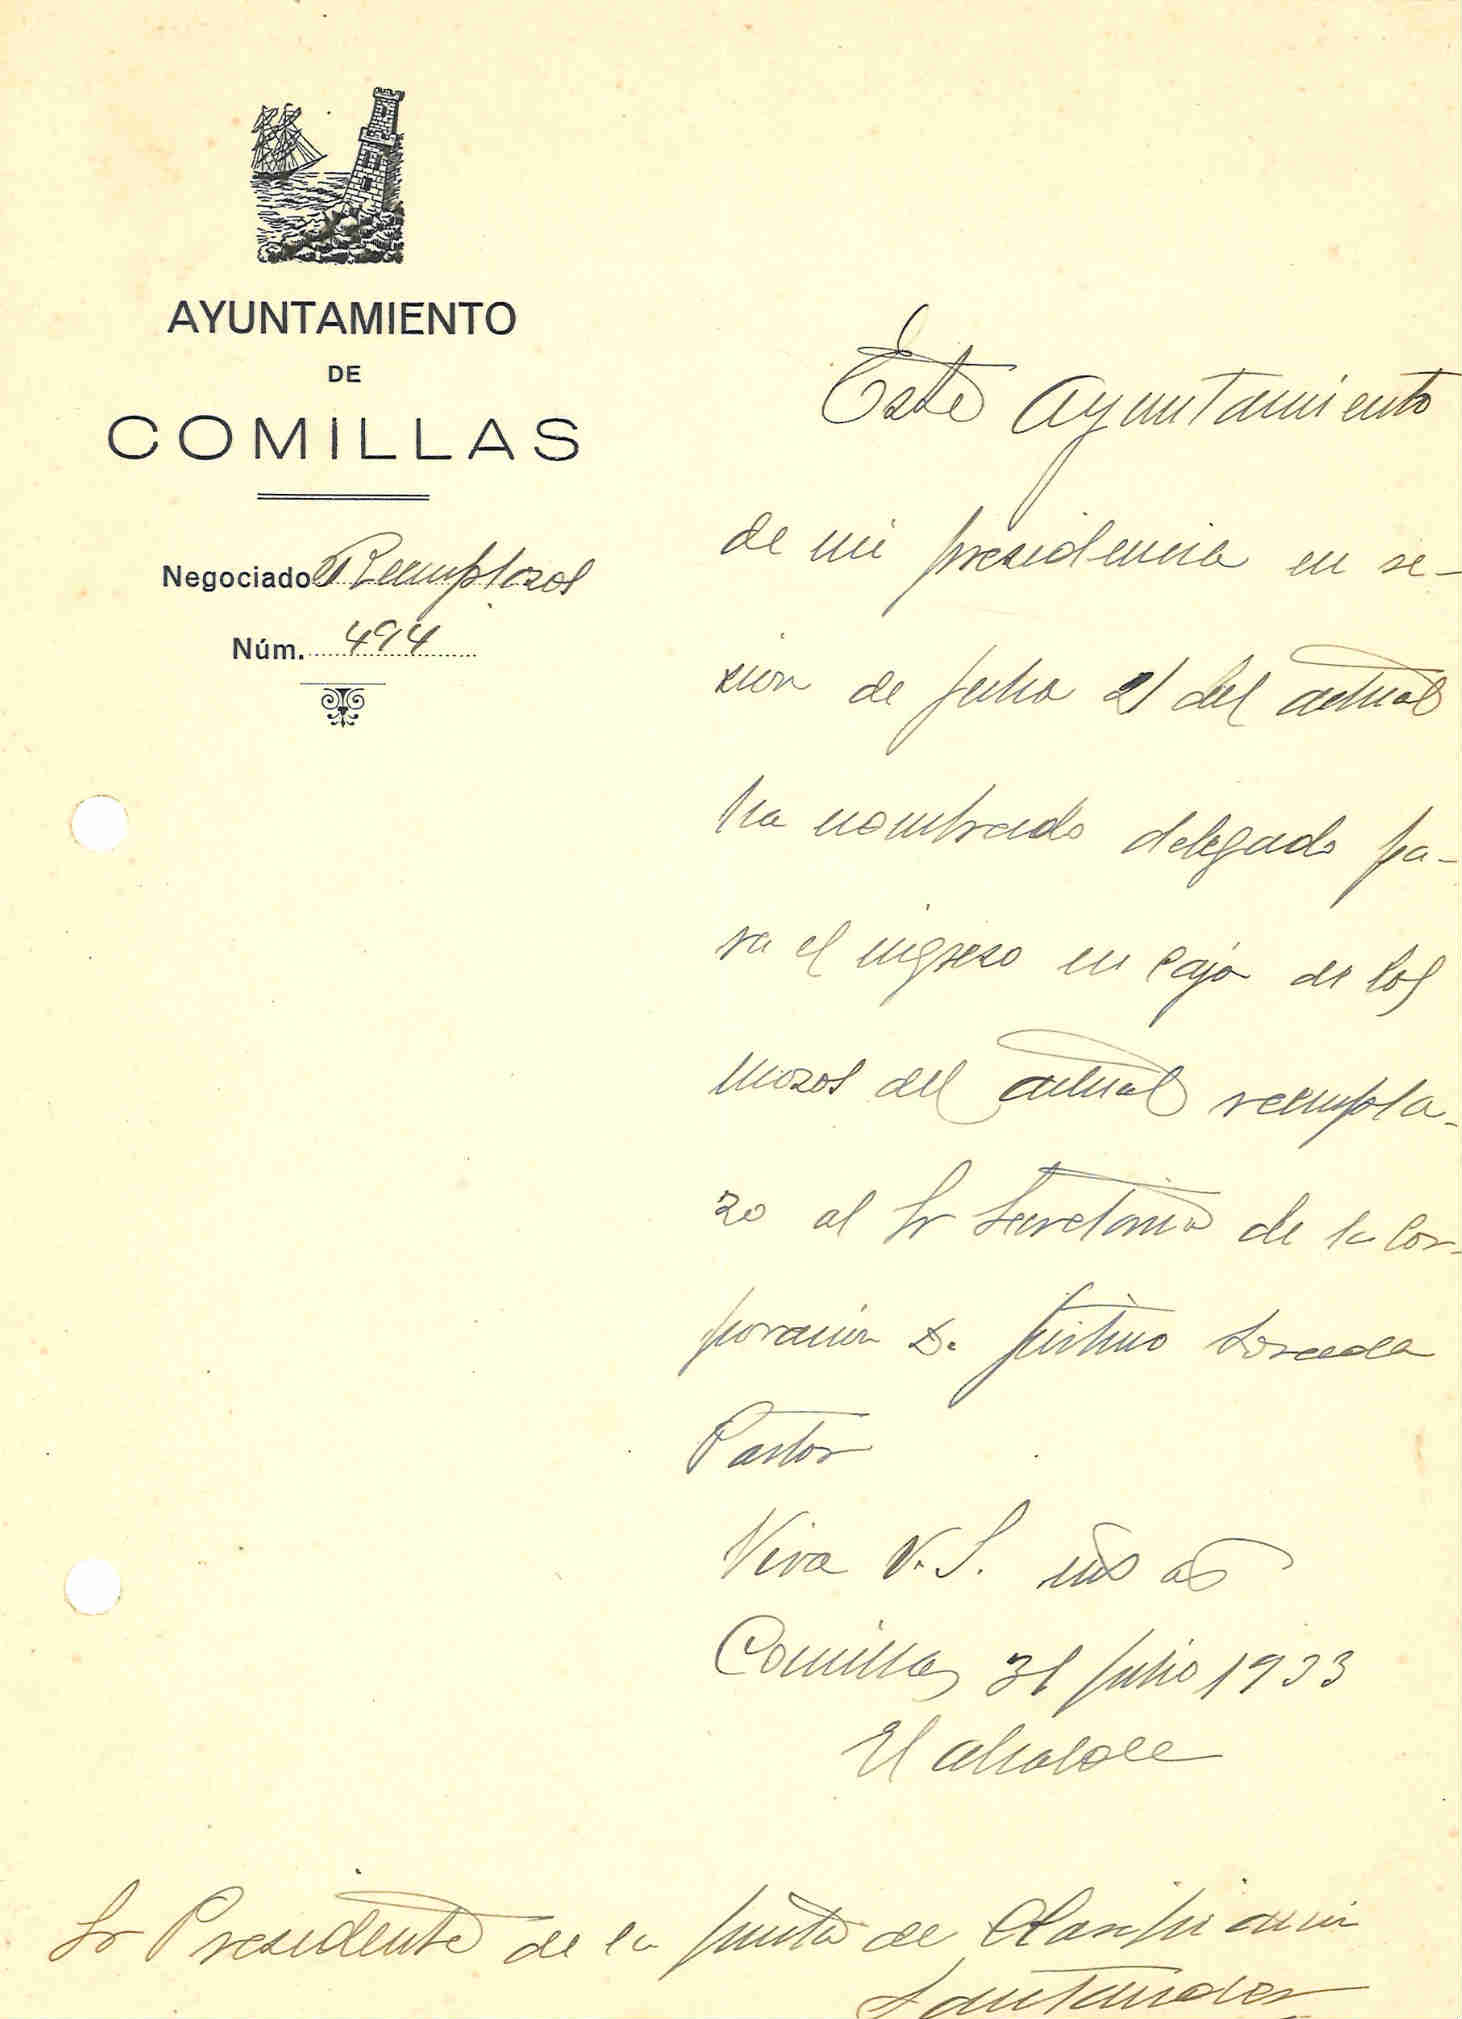 AYUNTAMIENTO
DE
COMILLAS
Negociado Reemplazos
Núm. 494
Este Ayuntamiento
de mi presidencia en se-
sion de fecha 21 del actual
ha nombrado delegado pa-
ra el ingreso en Caja de los
mozos del actual reempla-
zo al Sr Secretario de la Cor-
poracion D. Justino
Pastor
Viva V. S. ms as
Comillas 31 Julio 1933
El alcalde
Sr Presidente de la Junta de Clasificacion
Santander